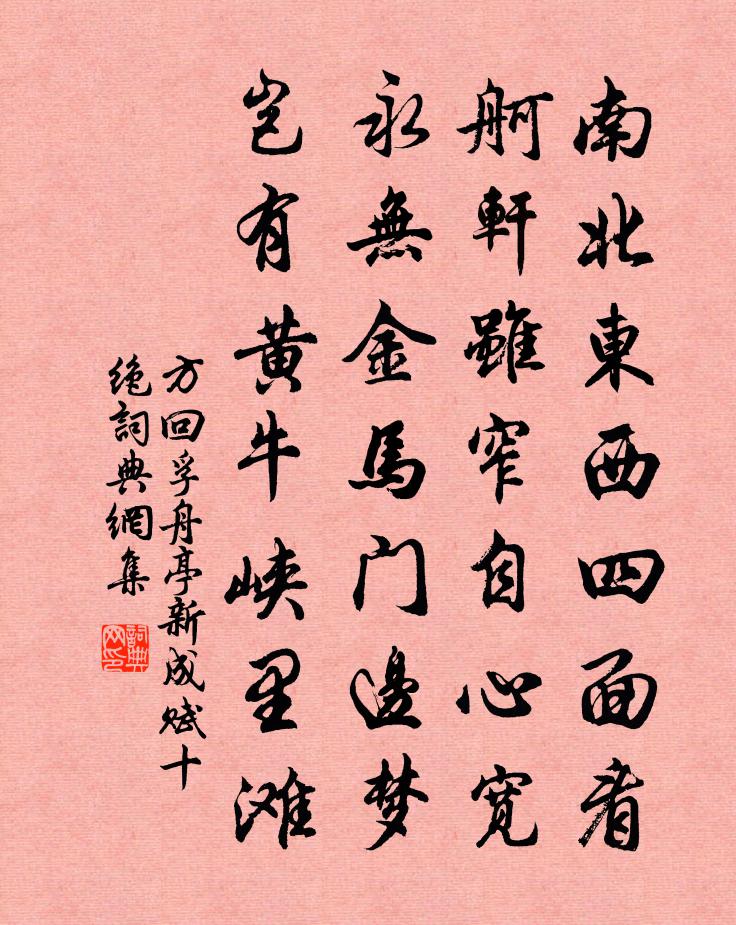 南北東西四面看
舸軒雖窄自心寛
永無金馬门邊梦
豈有黄牛峽里滩
方回孚舟亭新成赋十
绝詞典網集
詞典网印